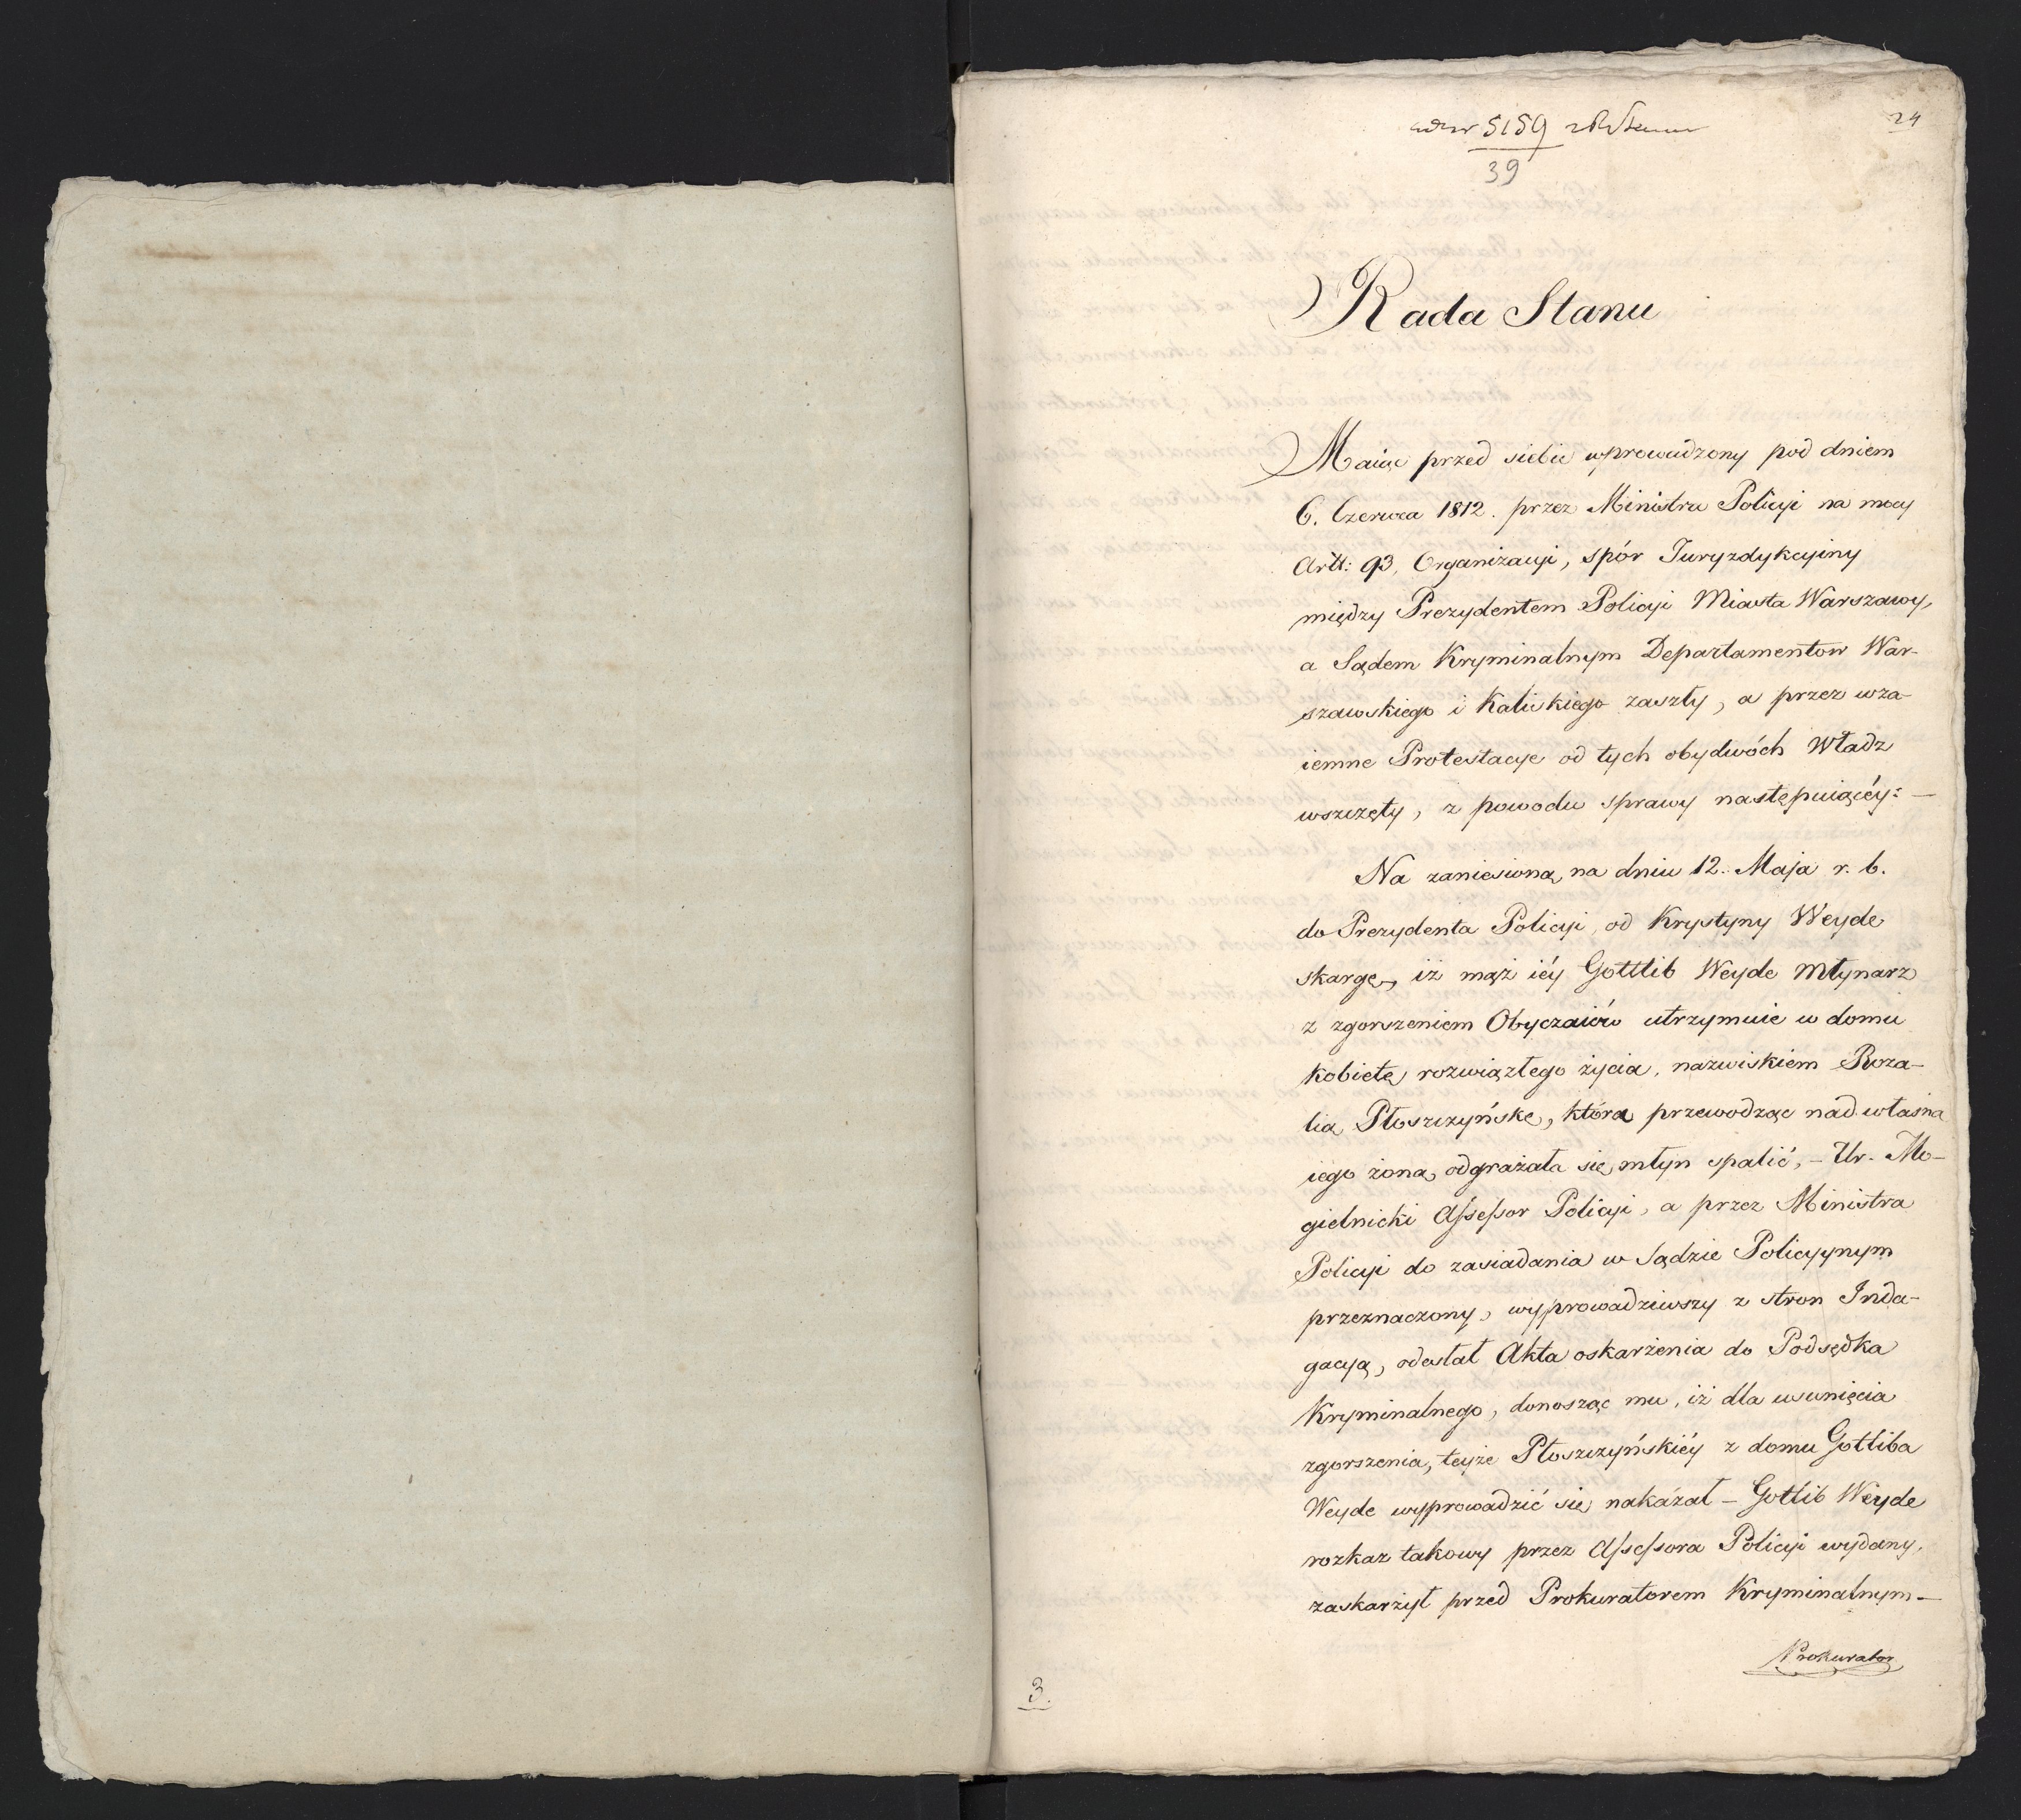 5159
39
24
Rada Stanu
Maiąc przed siebie wprowadzony pod dniem
6. Czerwca 1812. przez Ministra Policyi na mocy
Artt: 93, Organizacyi, spór Juryzdykcyiny
między Prezydentem Policyi Miasta Warszawy,
a Sądem Kryminalnym Departamentow War-
szawskiego i Kaliskiego zaszły, a przez wza-
iemne Protestacye od tych obydwóch Władz
wszczęty, z powodu sprawy następuiącéy: —
Na zaniesioną na dniu 12. Maja r. b.
do Prezydenta Policyi, od Krystyny Weyde
skargę, iż mąż iéy Gottlib Weyde Młynarz
z zgorszeniem Obyczaiów utrzymuie w domu
kobietę rozwiązłego życia, nazwiskiem Roza-
lią Płoszczyńską, która przewodząc nad własną
iego żoną, odgrażała się młyn spalić, – Ur. Mo-
gielnicki Assessor Policyi, a przez Ministra
Policyi do zasiadania w Sądzie Policyynym
przeznaczony, wyprowadziwszy z stron Inda-
gacyą, odesłał Akta oskarżenia do Podsędka
Kryminalnego, donosząc mu, iż dla usunięcia
zgorszenia, teyże Płoszczyńskiéy z domu Gotliba
Weyde wyprowadzić się nakazał – Gotlib Weyde
rozkaz takowy przez Assessora Policyi wydany,
zaskarżył przed Prokuratorem Kryminalnym —
Prokurator
3.